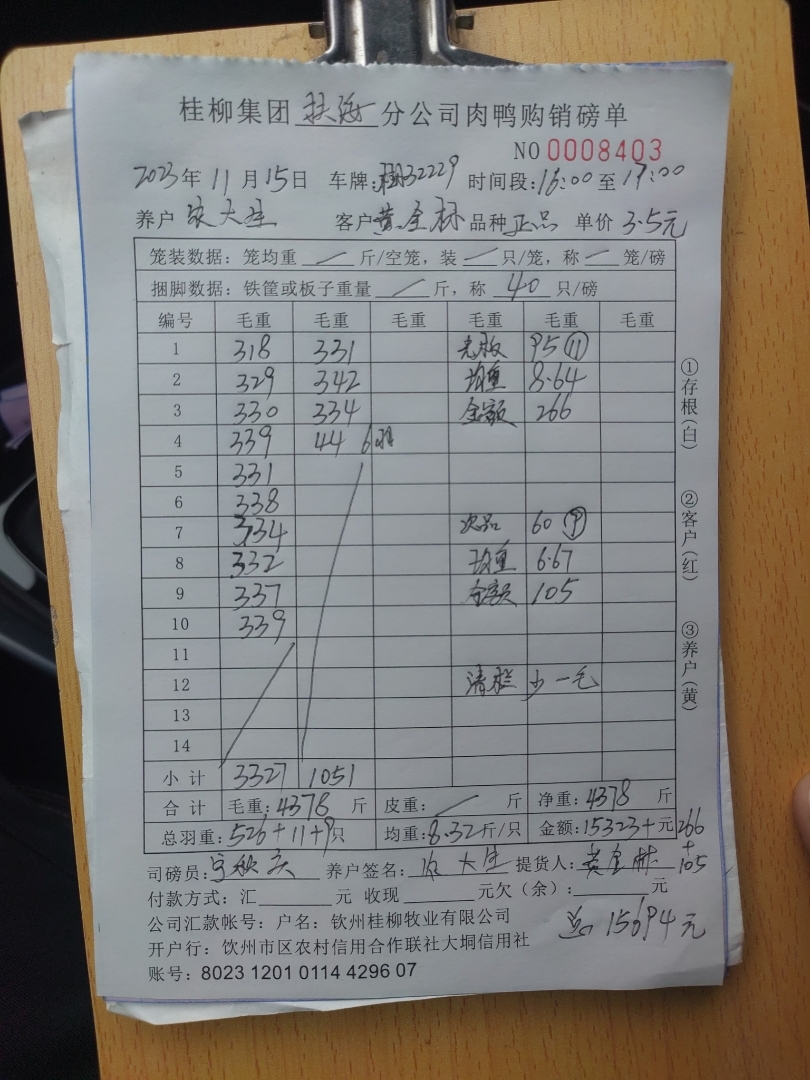 桂柳集团 扶海 分公司肉鸭购销磅单
NO 0008403
2023年 11月 15日 车牌: 32229 时间段: 16:00 至 17:00
养户 大生 客户 黄全林 品种 正品 单价 3.5元
笼装数据: 笼均重 — 斤/空笼, 装 — 只/笼, 称 — 笼/磅
捆脚数据: 铁筐或板子重量 — 斤, 称 40 只/磅
编号 毛重 毛重 毛重 毛重 毛重 毛重
1 318 331 毛板 95 ⑪
2 329 342 均重 8.64
3 330 334 金额 266
4 339 44 6羽
5 331
6 338
7 334 次品 60 ⑨
8 332 均重 6.67
9 337 金额 105
10 339
11
12 清栏 少一毛
13
14
小计 3327 1051
合计 毛重: 4378 斤 皮重: — 斤 净重: 4378 斤
总羽重: 526+11+9只 均重: 8.32斤/只 金额: 15323+元 266
+
105
司磅员: 养户签名: 大生 提货人: 黄全林
付款方式: 汇 元 收现 元欠(余): 元
公司汇款帐号: 户名: 钦州桂柳牧业有限公司
总 15694元
开户行: 钦州市区农村信用合作联社大垌信用社
账号: 8023 1201 0114 4296 07
①存根(白)
②客户(红)
③养户(黄)